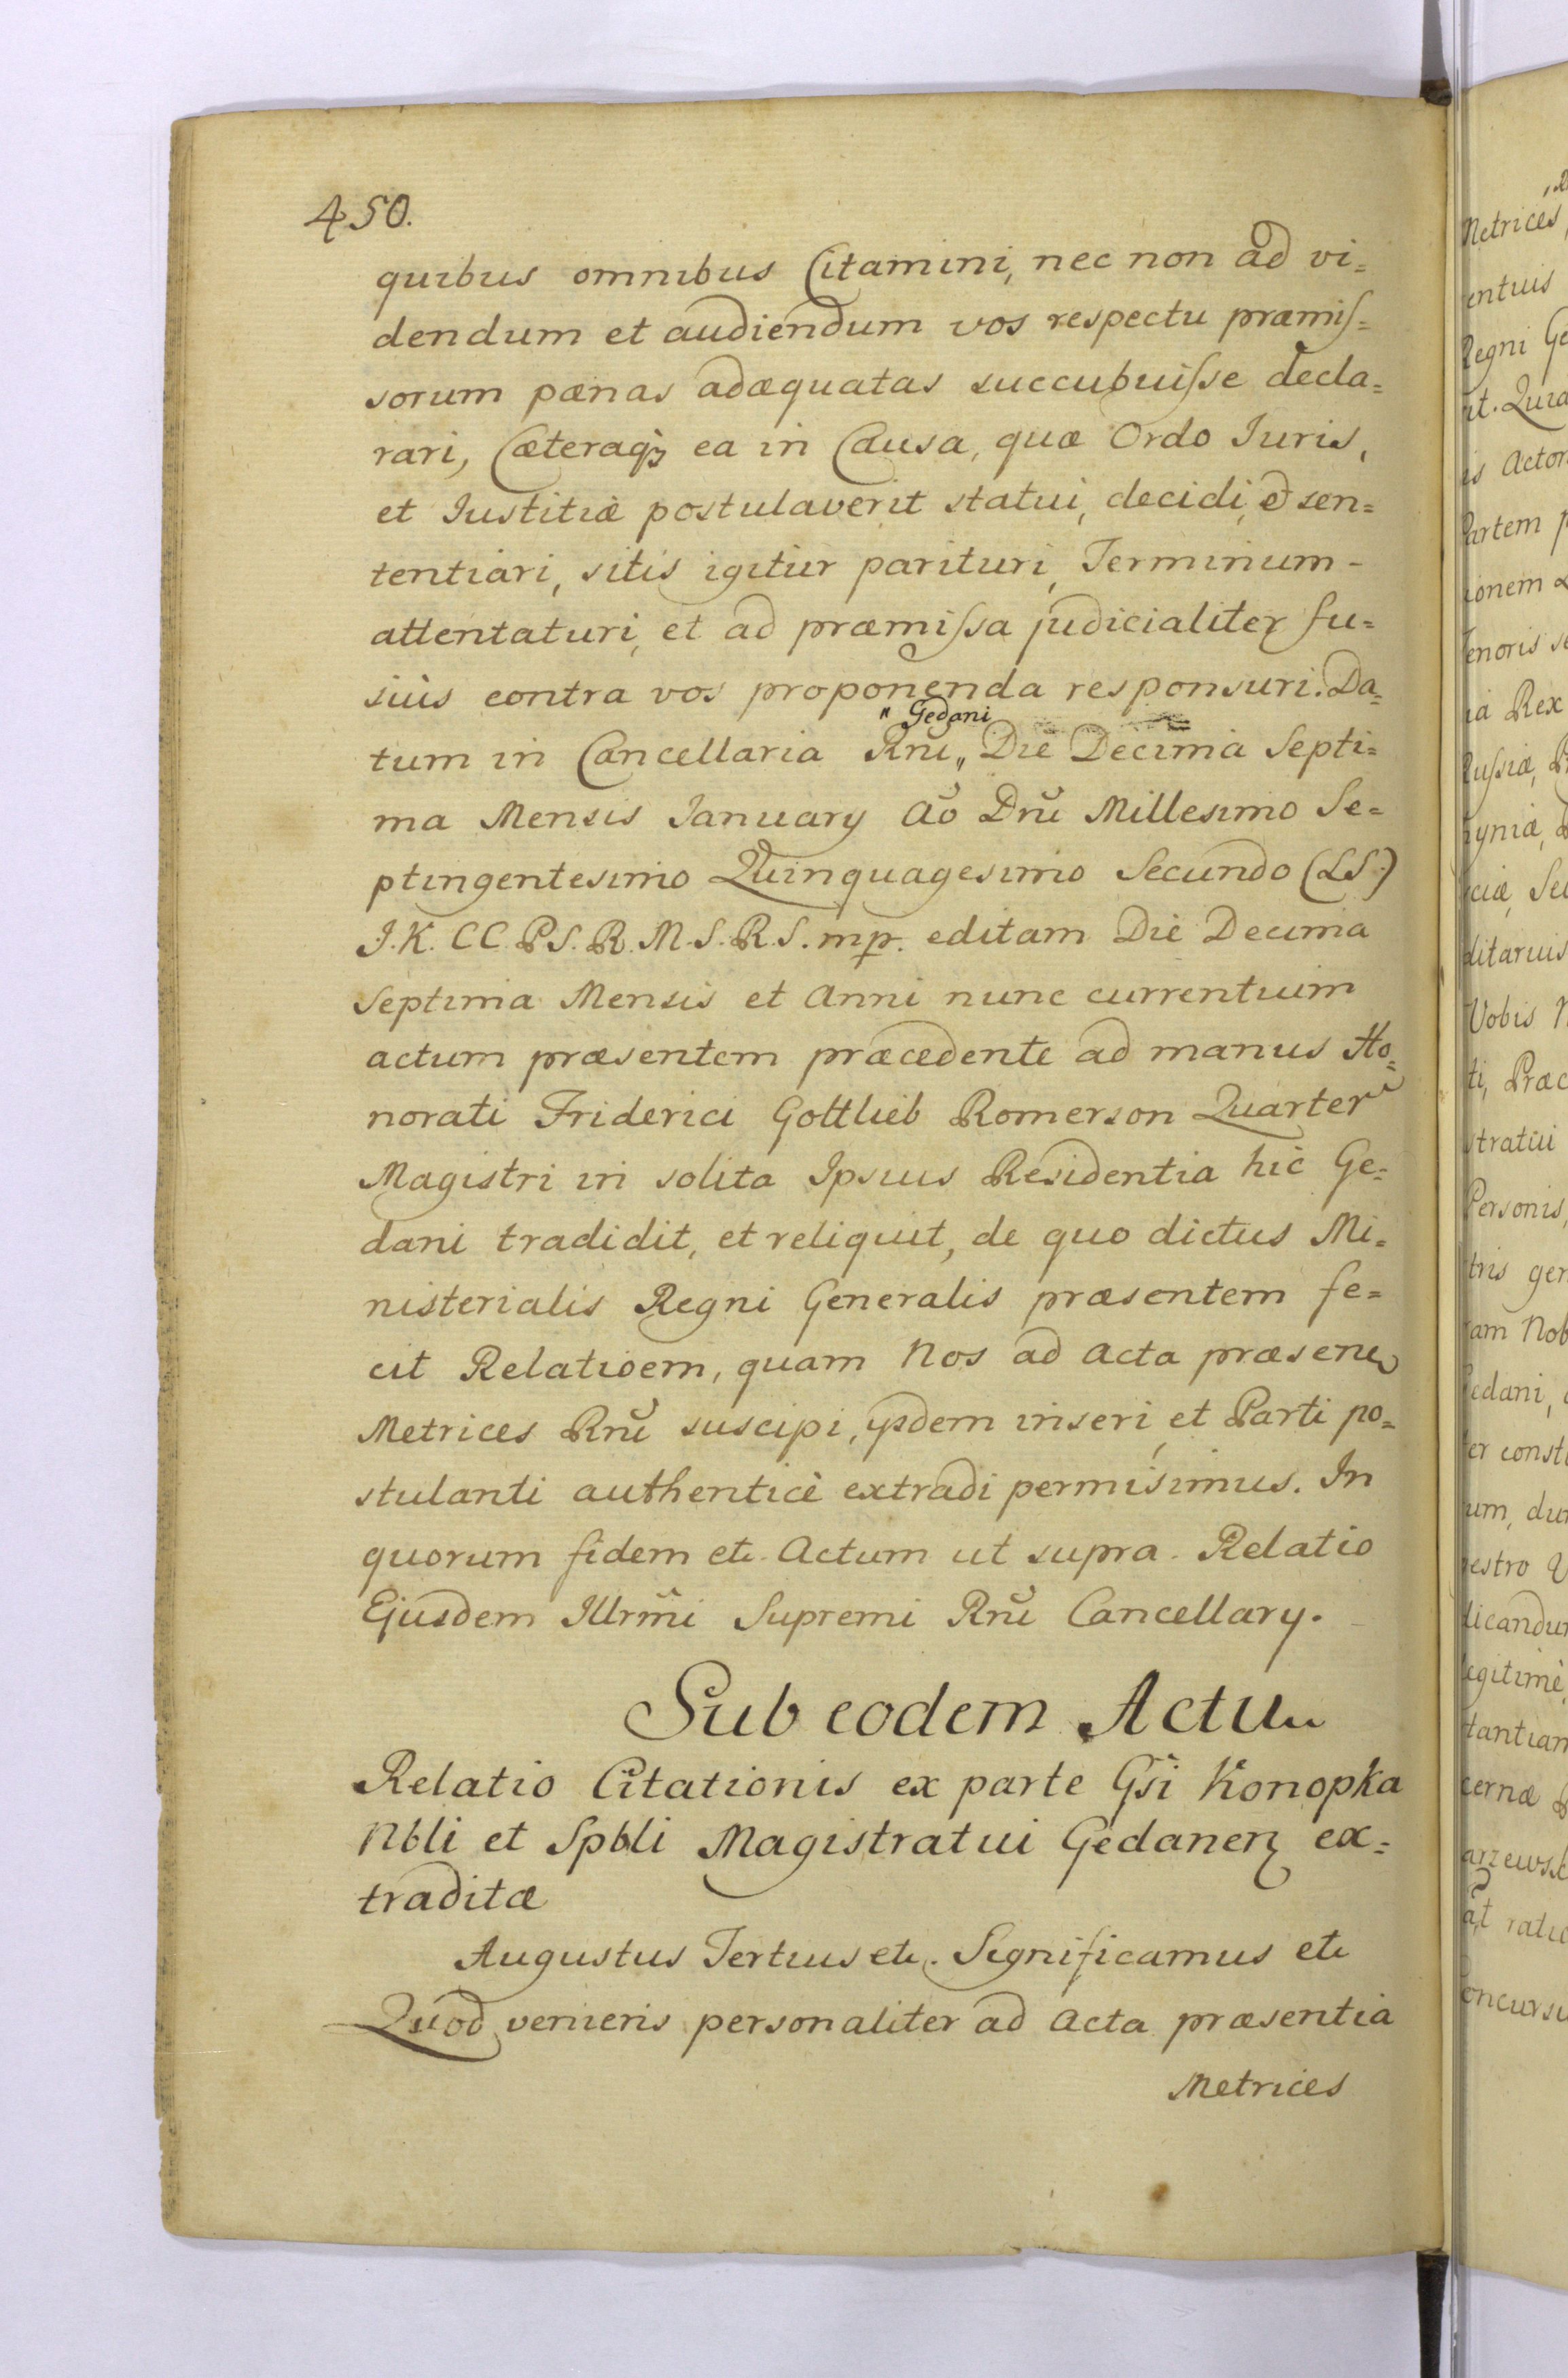 450.
quibus omnibus Citamini, nec non ad vi=
dendum et audiendum vos respectu præmis=
sorum pænas adæquatas succubuisse decla=
rari, Cæteraq3 ea in Causa, quæ Ordo Iuris,
et Iustitiæ postulaverit statui, decidi, & sen=
tentiari, sitis igitur parituri, Terminum-
attentaturi, et ad præmissa judicialiter fu=
siùs contra vos proponenda responsuri. Da=
"Gedani
tum in Cancellaria Rnĩ„ Die Decima Septi=
ma Mensis January Aõ Dnĩ Millesimo Se=
ptingentesimo Quinquagesimo Secundo (LS.)
J.K. CC. PS. R. M. S. R. S. mp. editam Die Decima
Septima Mensis et Anni nunc currentium
actum præsentem præcedente ad manus Ho=
norati Friderici Gottlieb Romerson Quarter
Magistri in solita Ipsius Residentia hic Ge=
dani tradidit, et reliquit, de quo dictus Mi=
nisterialis Regni Generalis præsentem fe=
cit Relatioem, quam Nos ad Acta præsen
Metrices Rnĩ suscipi, ysdem inseri, et Parti po=
stulanti authenticè extradi permisimus. In
quorum fidem etc. Actum ut supra. Relatio
Ejusdem Illrm̃i Supremi Rnĩ Cancellary.
Sub eodem Actu
Relatio Citationis ex parte Gsi Konopka
Nbli et Spbli Magistratui Gedanen ex=
traditæ
Augustus Tertius etc. Significamus etc
Quod veniens personaliter ad Acta præsentia
Metrices
Metrices
Regni Ge
it. Quia
is Actor
Partem p
ionem
Tenoris se
ia Rex
Russiæ,
ciæ, Se
Vobis N
ti, Præc
stratui
Personis,
tris gen
am Nob
edani,
er const
um, du
estro V
licandu
egitimè
tantiam
ernæ
arzewsk
at ratio
oncursu